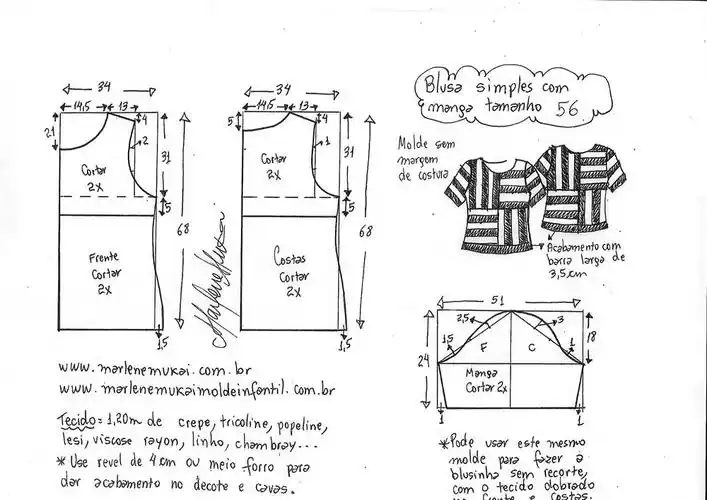 34
14,5
13
4
21
2
31
Cortar
2X
5
68
Frente
Cortar
2X
1,5
34
14,5
13
4
5
1
31
Cortar
2X
5
68
Costas
Cortar
2X
1,5
www.marlenemukai.com.br
www.marlenemukaimoldeinfantil.com.br
Tecido = 1,20m de crepe, tricoline, popeline,
lesi, viscose rayon, linho, chambray...
* Use revel de 4 cm ou meio forro para
dar acabamento no decote e cavas.
Blusa simples com
manga tamanho 56
Molde sem
margem
de costura
Acabamento com
barra larga de
3,5cm
51
2,5
3
1,5
1
18
24
F
C
Manga
Cortar 2x
1
1
*Pode usar este mesmo
molde para fazer a
blusinha sem recorte,
com o tecido dobrado
frente e costas.